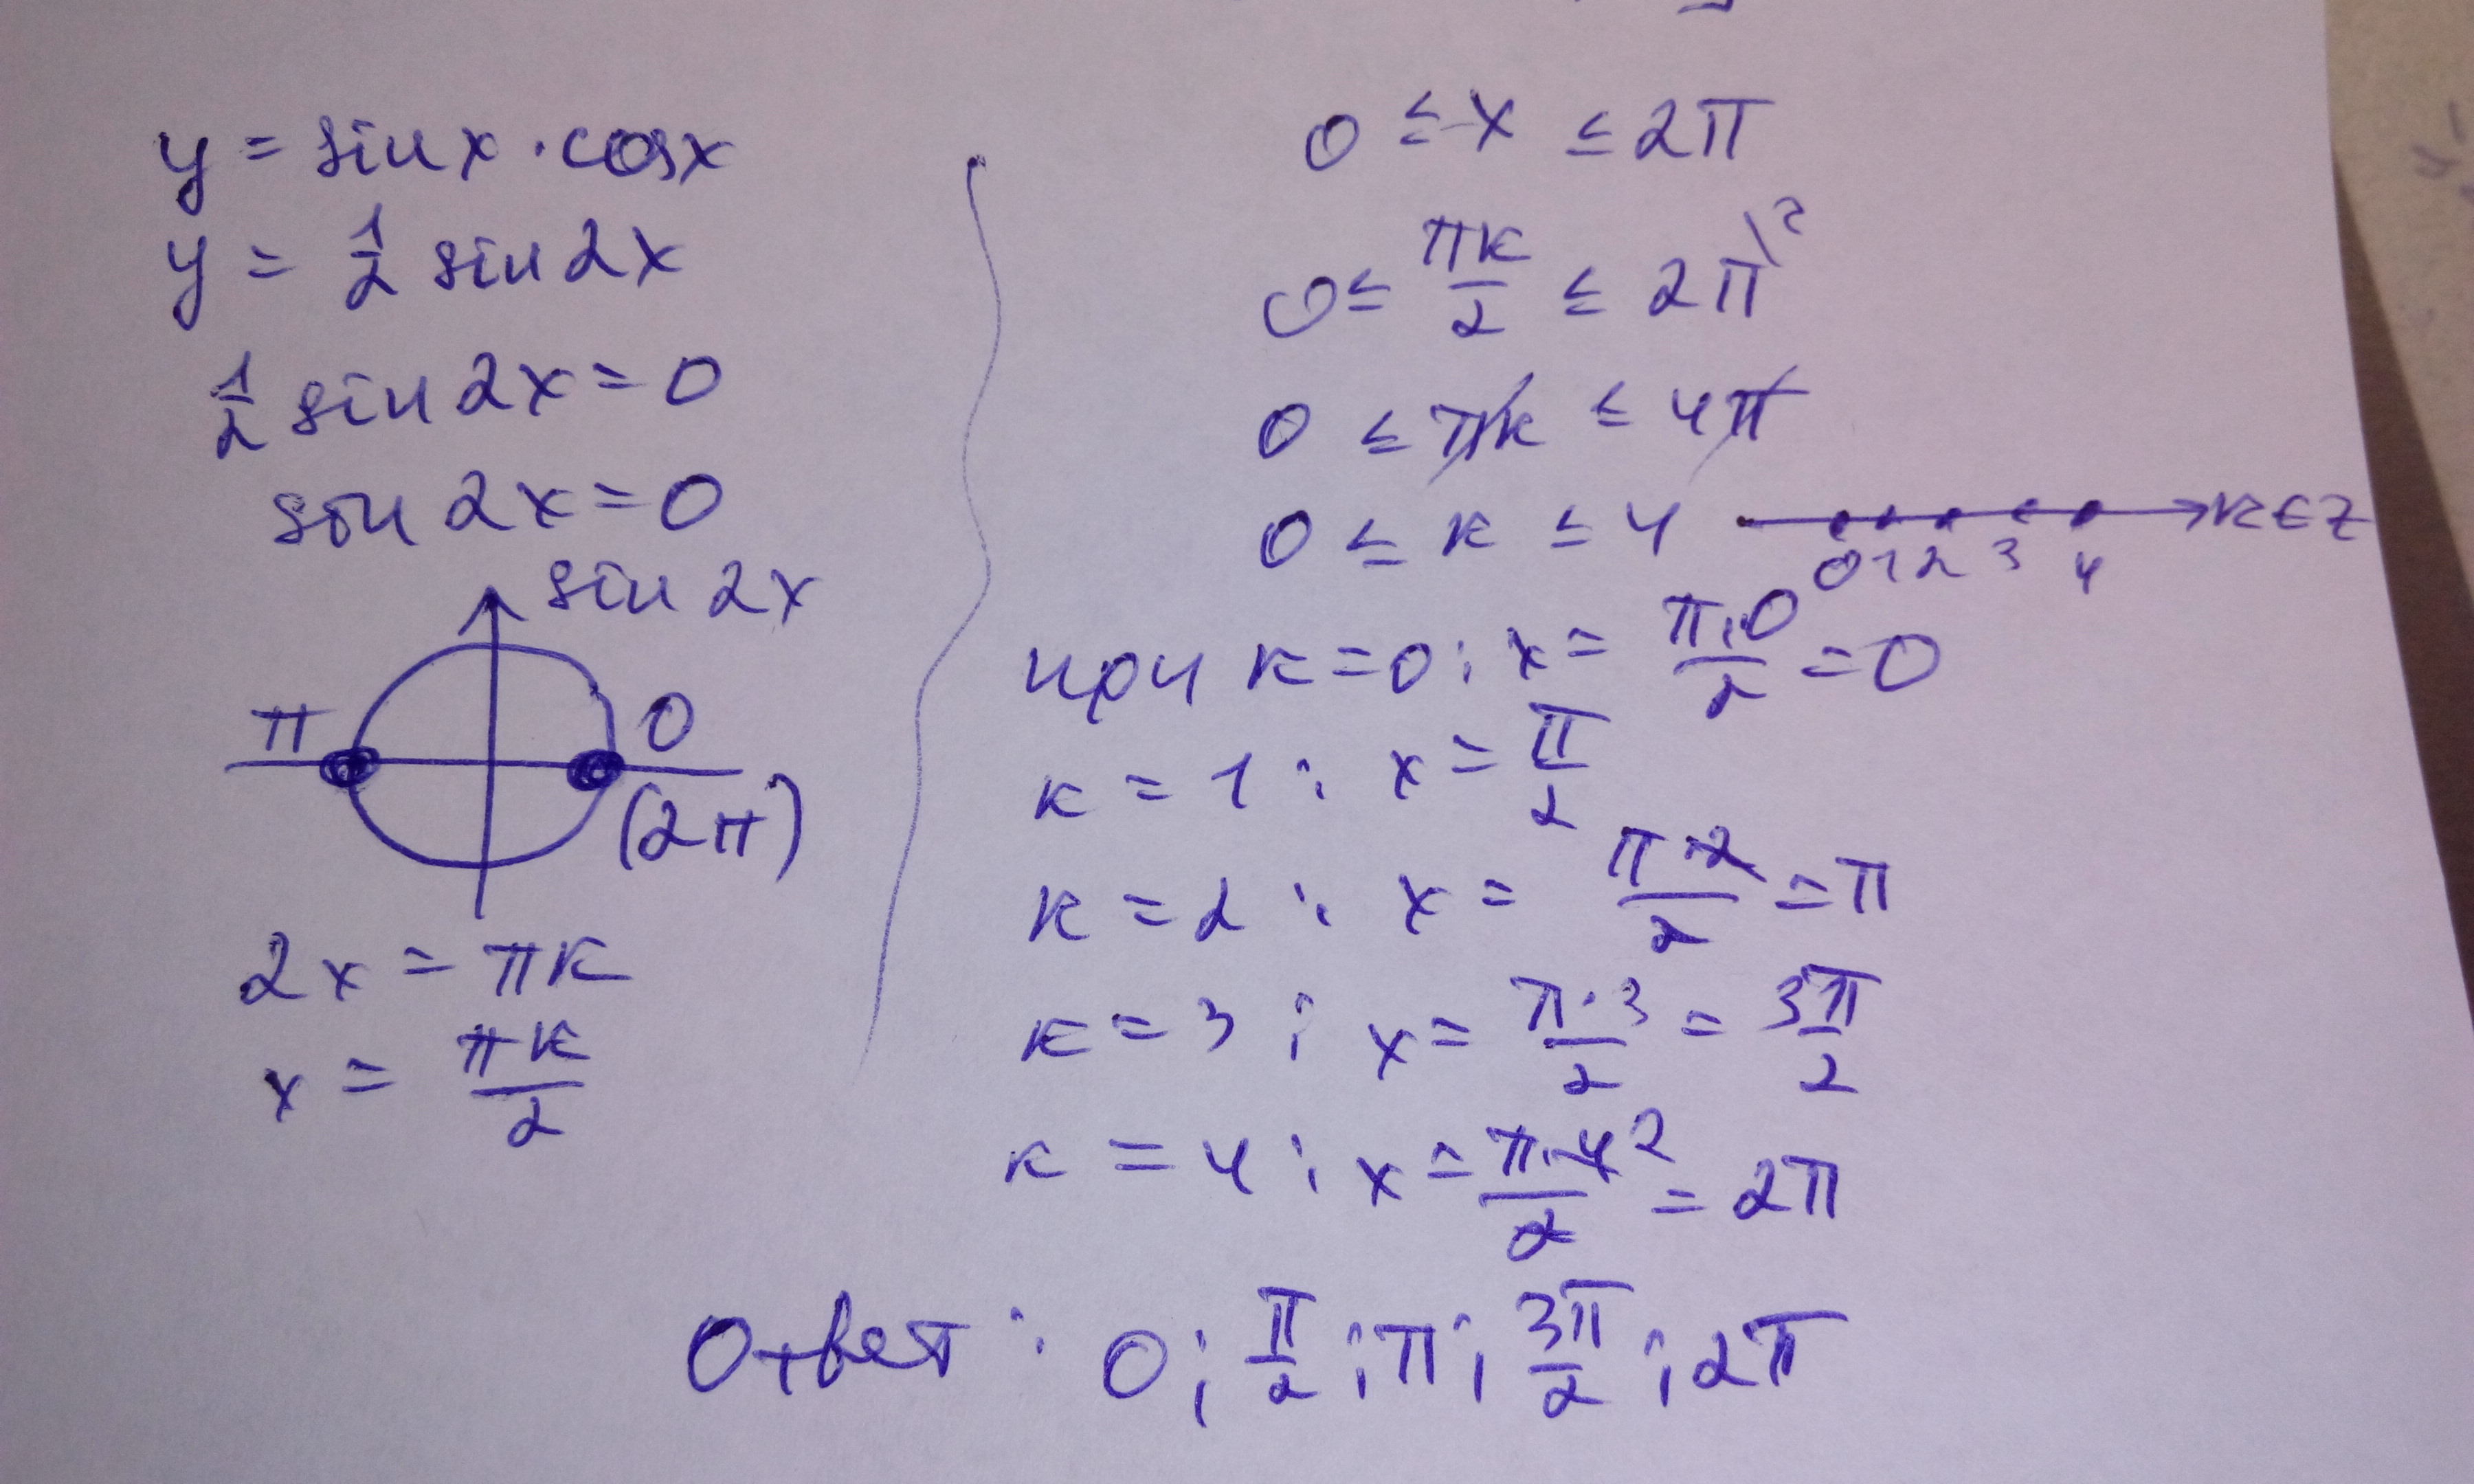 y = sin x · cos x
y = 1/2 sin 2x
1/2 sin 2x = 0
sin 2x = 0
sin 2x
π 0
(2π)
2x = πк
x = πк/2
0 ≤ x ≤ 2π
0 ≤ πк/2 ≤ 2π \2
0 ≤ πк ≤ 4π
0 ≤ к ≤ 4 к ∈ Z
0 1 2 3 4
при к = 0 : x = π·0/2 = 0
к = 1 : x = π/2
к = 2 : x = π·2/2 = π
к = 3 : x = π·3/2 = 3π/2
к = 4 : x = π·4 2/2 = 2π
Ответ : 0 ; π/2 ; π ; 3π/2 ; 2π